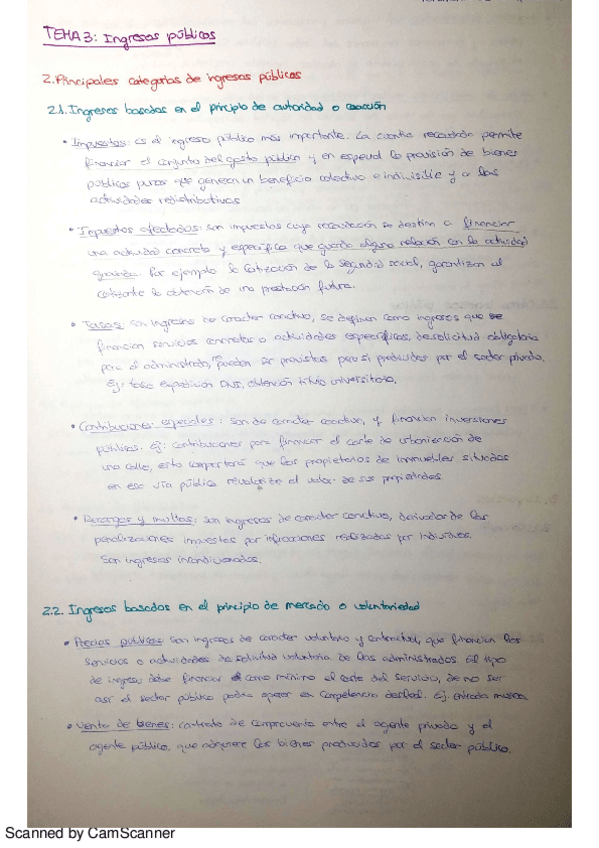 TEMA 3: Ingresos públicos
2. Principales categorías de ingresos públicos
2.1. Ingresos basados en el principio de autoridad o coacción
• Impuestos: es el ingreso público más importante. La cuantía recaudada permite
financiar el conjunto del gasto público y en especial la provisión de bienes
públicos puros que generan un beneficio colectivo e indivisible y a las
actividades redistributivas
• Impuestos afectados: son impuestos cuya recaudación se destina a financiar
una actividad concreta y específica que guarda alguna relación con la actividad
gravada. Por ejemplo la cotización de la seguridad social, garantizan al
cotizante la obtención de una prestación futura.
• Tasas: son ingresos de carácter coactivo, se definen como ingresos que se
financian servicios concretos o actividades específicas, de solicitud obligatoria
para el administrado, pueden ser provistos pero sí producidos por el sector privado.
Ej: tasa expedición DNI, obtención título universitario.
• Contribuciones especiales: son de carácter coactivo, y financian inversiones
públicas. Ej: contribuciones para financiar el coste de urbanización de
una calle, esto comportará que los propietarios de inmuebles situados
en esa vía pública revalorize el valor de sus propiedades.
• Recargos y multas: son ingresos de carácter coactivo, derivados de las
penalizaciones impuestas por infracciones realizadas por individuos.
Son ingresos incondicionados.
2.2. Ingresos basados en el principio de mercado o voluntariedad
• Precios públicos: son ingresos de carácter voluntario y contractual, que financian los
servicios o actividades de solicitud voluntaria de los administrados. El tipo
de ingreso debe financiar como mínimo el coste del servicio, de no ser
así el sector público podría operar en competencia desleal. Ej. entrada museo.
• Venta de bienes: contrato de compraventa entre el agente privado y el
agente público, que adquiere los bienes producidos por el sector público.
Scanned by CamScanner